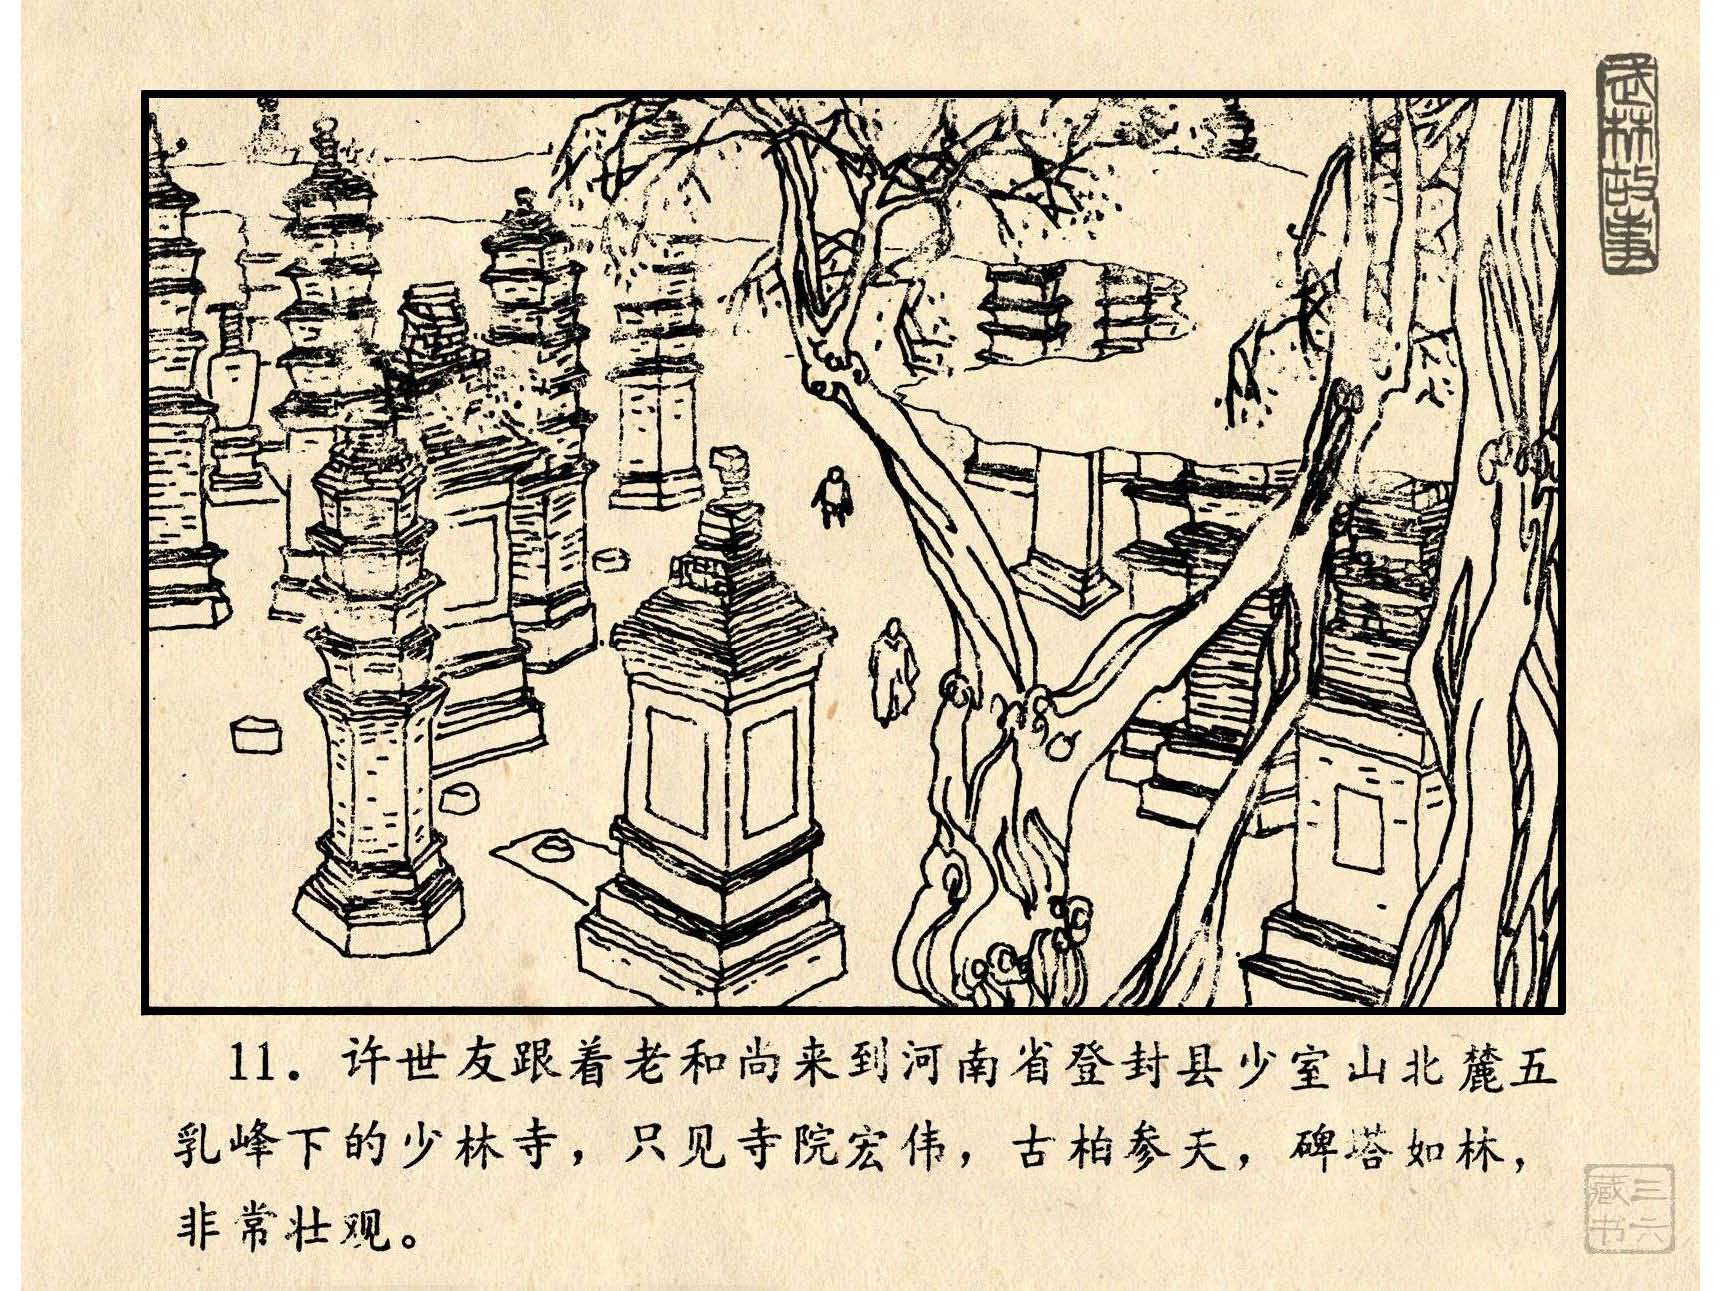 武林故事
11．许世友跟着老和尚来到河南省登封县少室山北麓五
乳峰下的少林寺，只见寺院宏伟，古柏参天，碑塔如林，
非常壮观。
三六
藏书